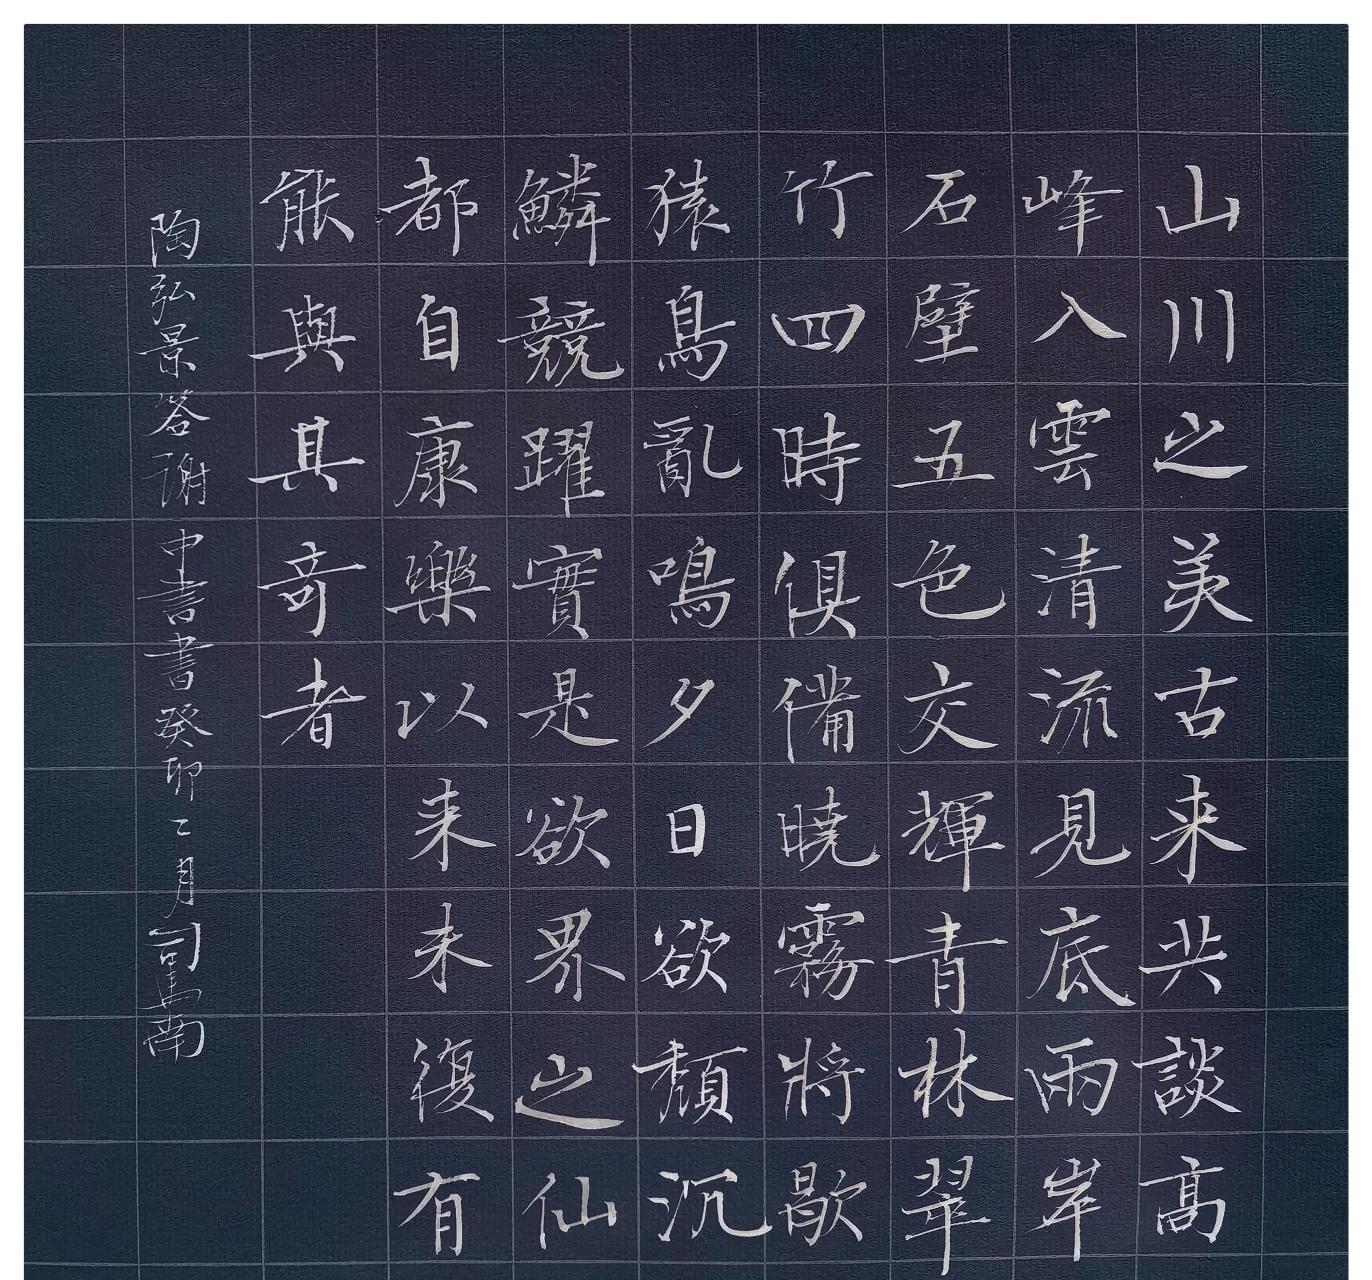 山川之美古来共談高
峰入雲清流見底兩岸
石壁五色交輝青林翠
竹四時俱備曉霧將歇
猿鳥亂鳴夕日欲頽沉
鱗競躍實是欲界之仙
都自康樂以来未復有
能與其奇者
陶弘景答谢中書書癸卯二月司馬南